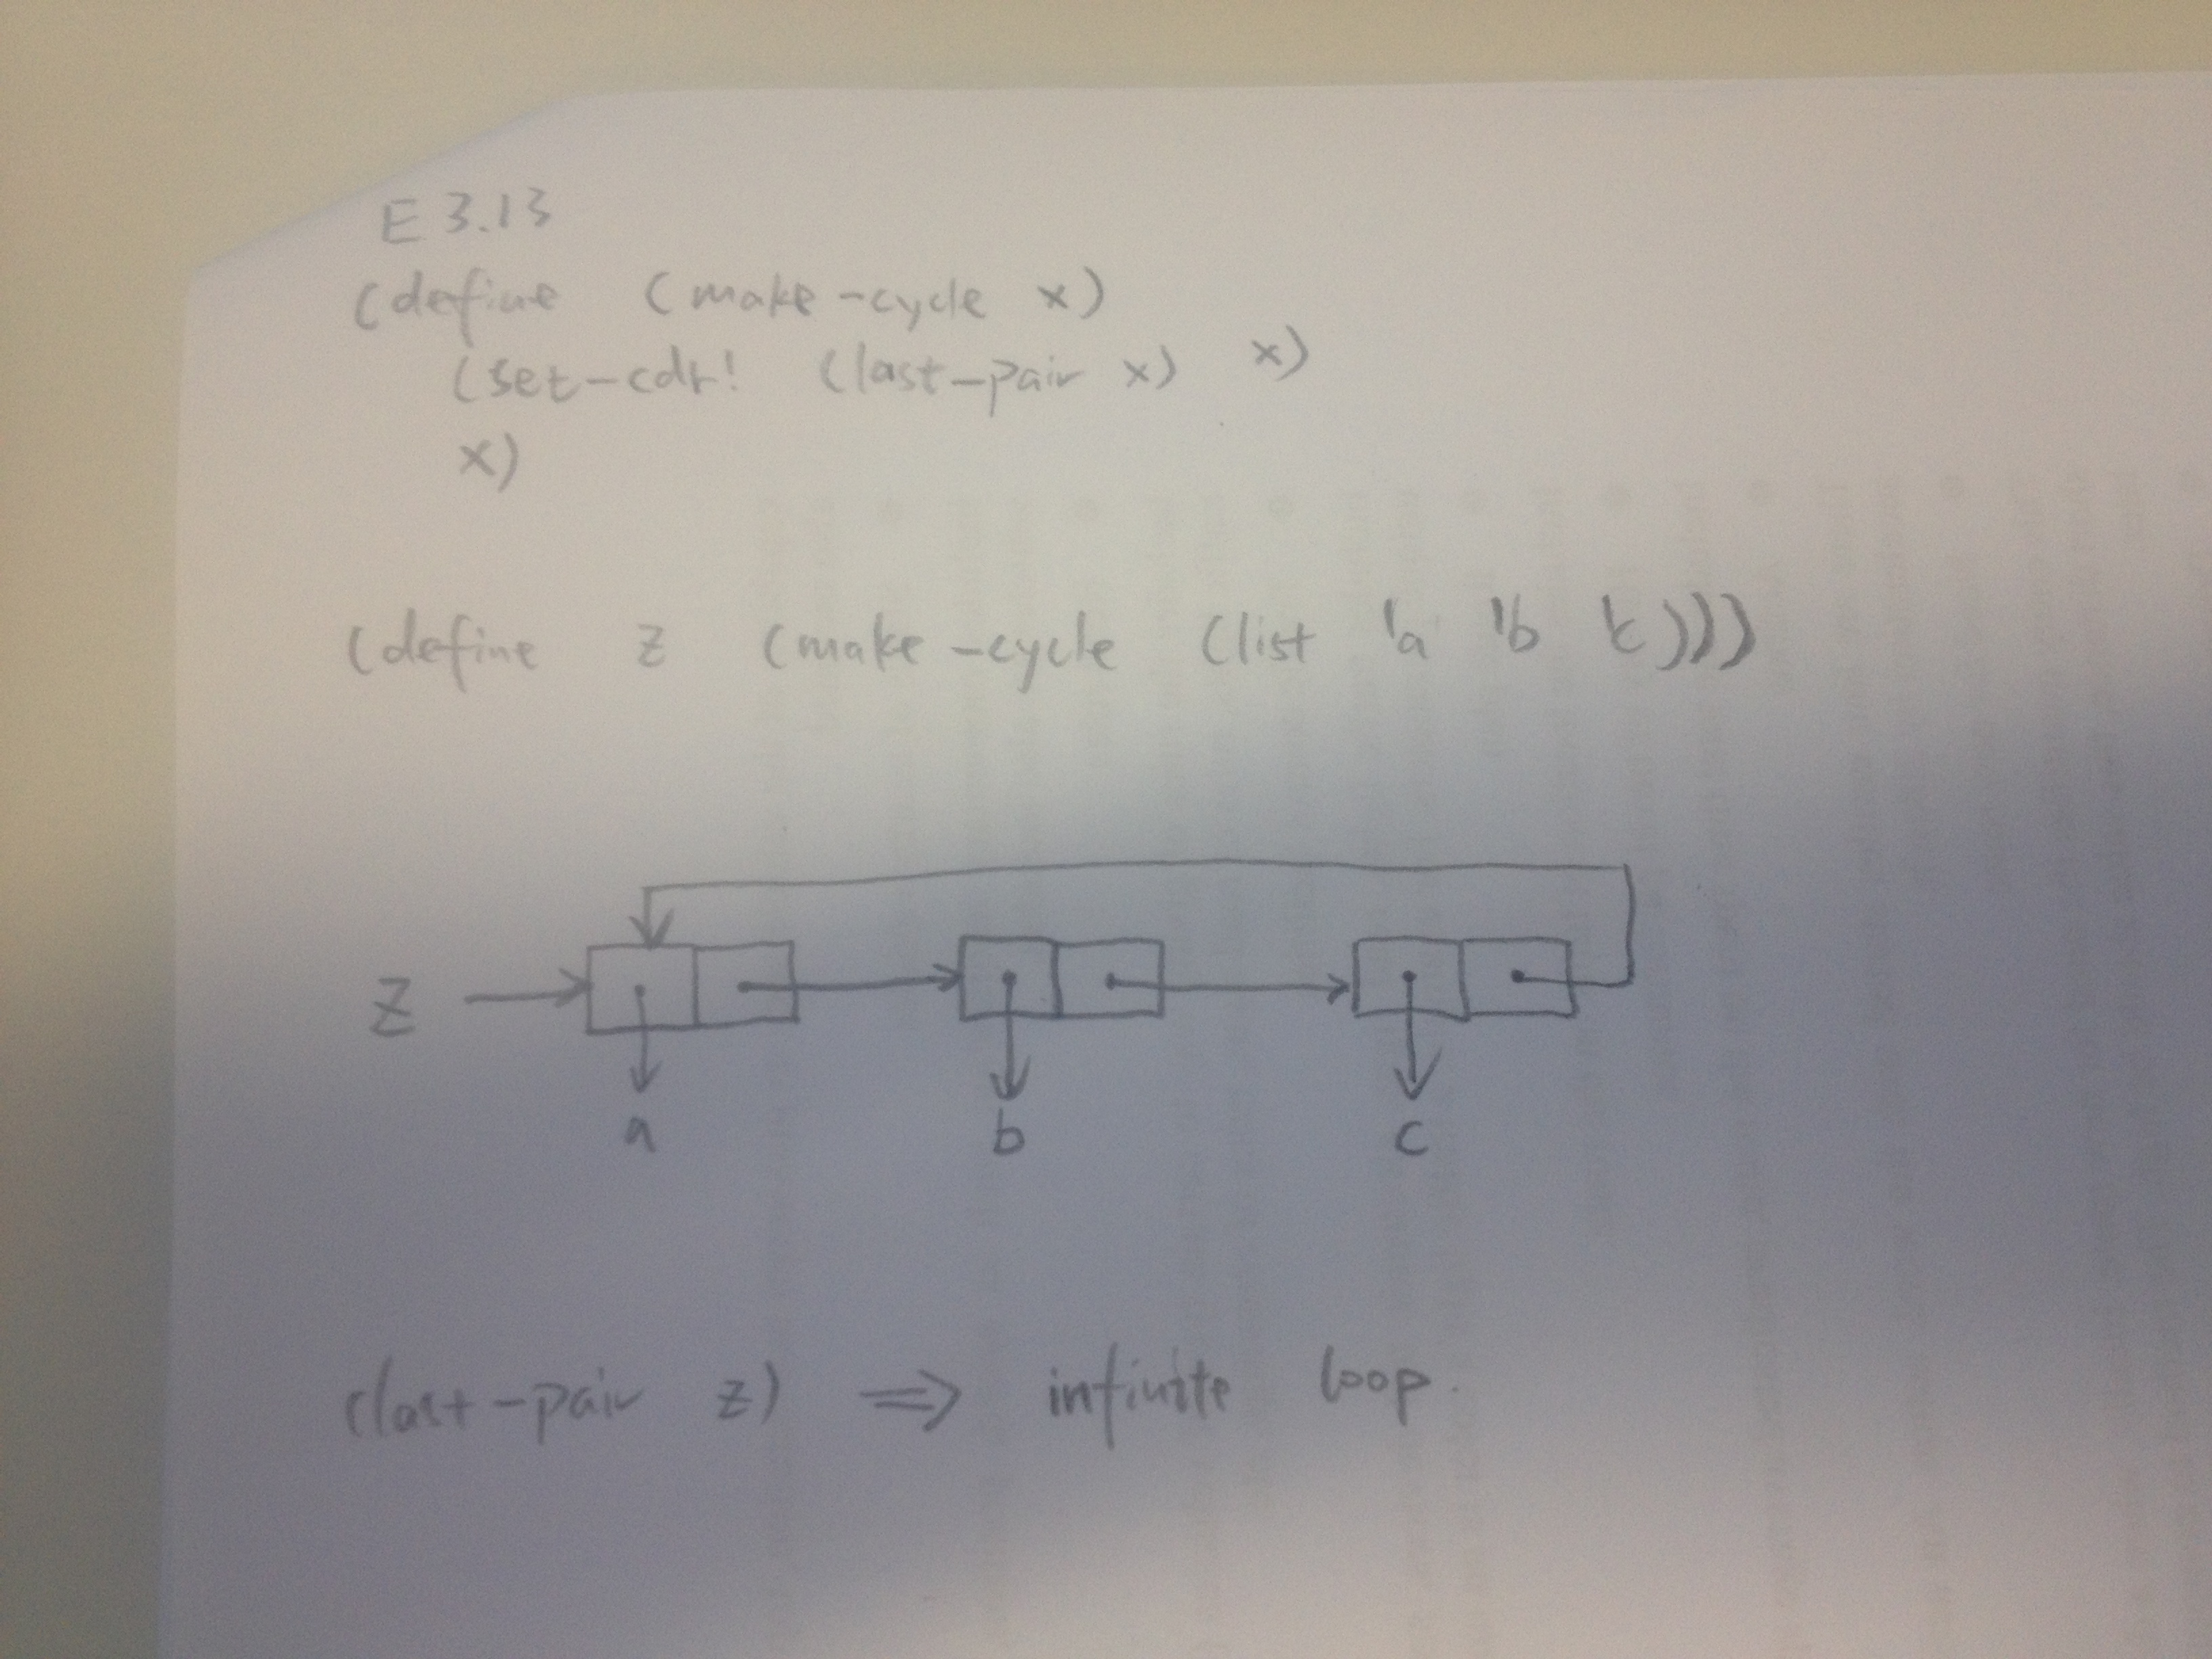 E 3.13
(define (make-cycle x)
(set-cdr! (last-pair x) x)
x)
(define z (make-cycle (list 'a 'b 'c)))
z
a b c
(last-pair z) ⇒ infinite loop.